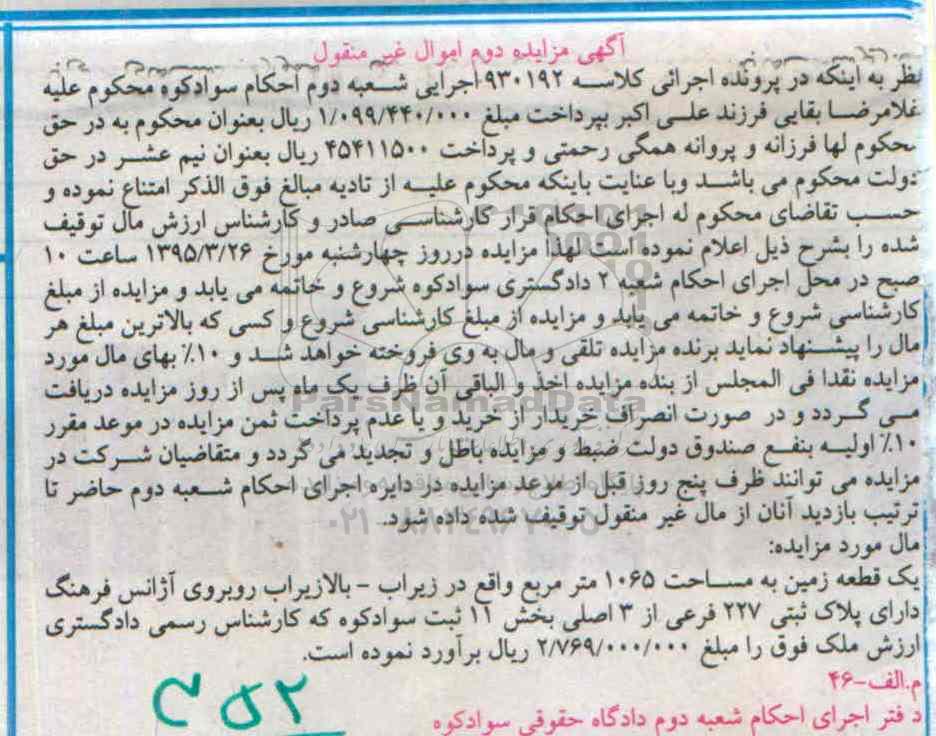 آگهی مزایده دوم اموال غیر منقول
نظر به اینکه در پرونده اجرائی کلاسه ۹۳۰۱۹۲ اجرایی شعبه دوم احکام سوادکوه محکوم علیه
غلامرضا بقایی فرزند علی اکبر بپرداخت مبلغ ۱/۰۹۹/۴۴۰/۰۰۰ ریال بعنوان محکوم به در حق
محکوم لها فرزانه و پروانه همگی رحمتی و پرداخت ۴۵۴۱۱۵۰۰ ریال بعنوان نیم عشر در حق
دولت محکوم می باشد وبا عنایت باینکه محکوم علیه از تادیه مبالغ فوق الذکر امتناع نموده و
حسب تقاضای محکوم له اجرای احکام قرار کارشناسی صادر و کارشناس ارزش مال توقیف
شده را بشرح ذیل اعلام نموده است لهذا مزایده درروز چهارشنبه مورخ ۱۳۹۵/۳/۲۶ ساعت ۱۰
صبح در محل اجرای احکام شعبه ۲ دادگستری سوادکوه شروع و خاتمه می یابد و مزایده از مبلغ
کارشناسی شروع و خاتمه می یابد و مزایده از مبلغ کارشناسی شروع و کسی که بالاترین مبلغ هر
مال را پیشنهاد نماید برنده مزایده تلقی و مال به وی فروخته خواهد شد و ۱۰٪ بهای مال مورد
مزایده نقدا فی المجلس از بنده مزایده اخذ و الباقی آن ظرف یک ماه پس از روز مزایده دریافت
می گردد و در صورت انصراف خریدار از خرید و یا عدم پرداخت ثمن مزایده در موعد مقرر
۱۰٪ اولیه بنفع صندوق دولت ضبط و مزایده باطل و تجدید می گردد و متقاضیان شرکت در
مزایده می توانند ظرف پنج روز قبل از موعد مزایده در دایره اجرای احکام شعبه دوم حاضر تا
ترتیب بازدید آنان از مال غیر منقول توقیف شده داده شود.
مال مورد مزایده:
یک قطعه زمین به مساحت ۱۰۶۵ متر مربع واقع در زیراب - بالازیراب روبروی آژانس فرهنگ
دارای پلاک ثبتی ۲۲۷ فرعی از ۳ اصلی بخش ۱۱ ثبت سوادکوه که کارشناس رسمی دادگستری
ارزش ملک فوق را مبلغ ۲/۷۶۹/۰۰۰/۰۰۰ ریال برآورد نموده است.
م.الف-۴۶
دفتر اجرای احکام شعبه دوم دادگاه حقوقی سوادکوه